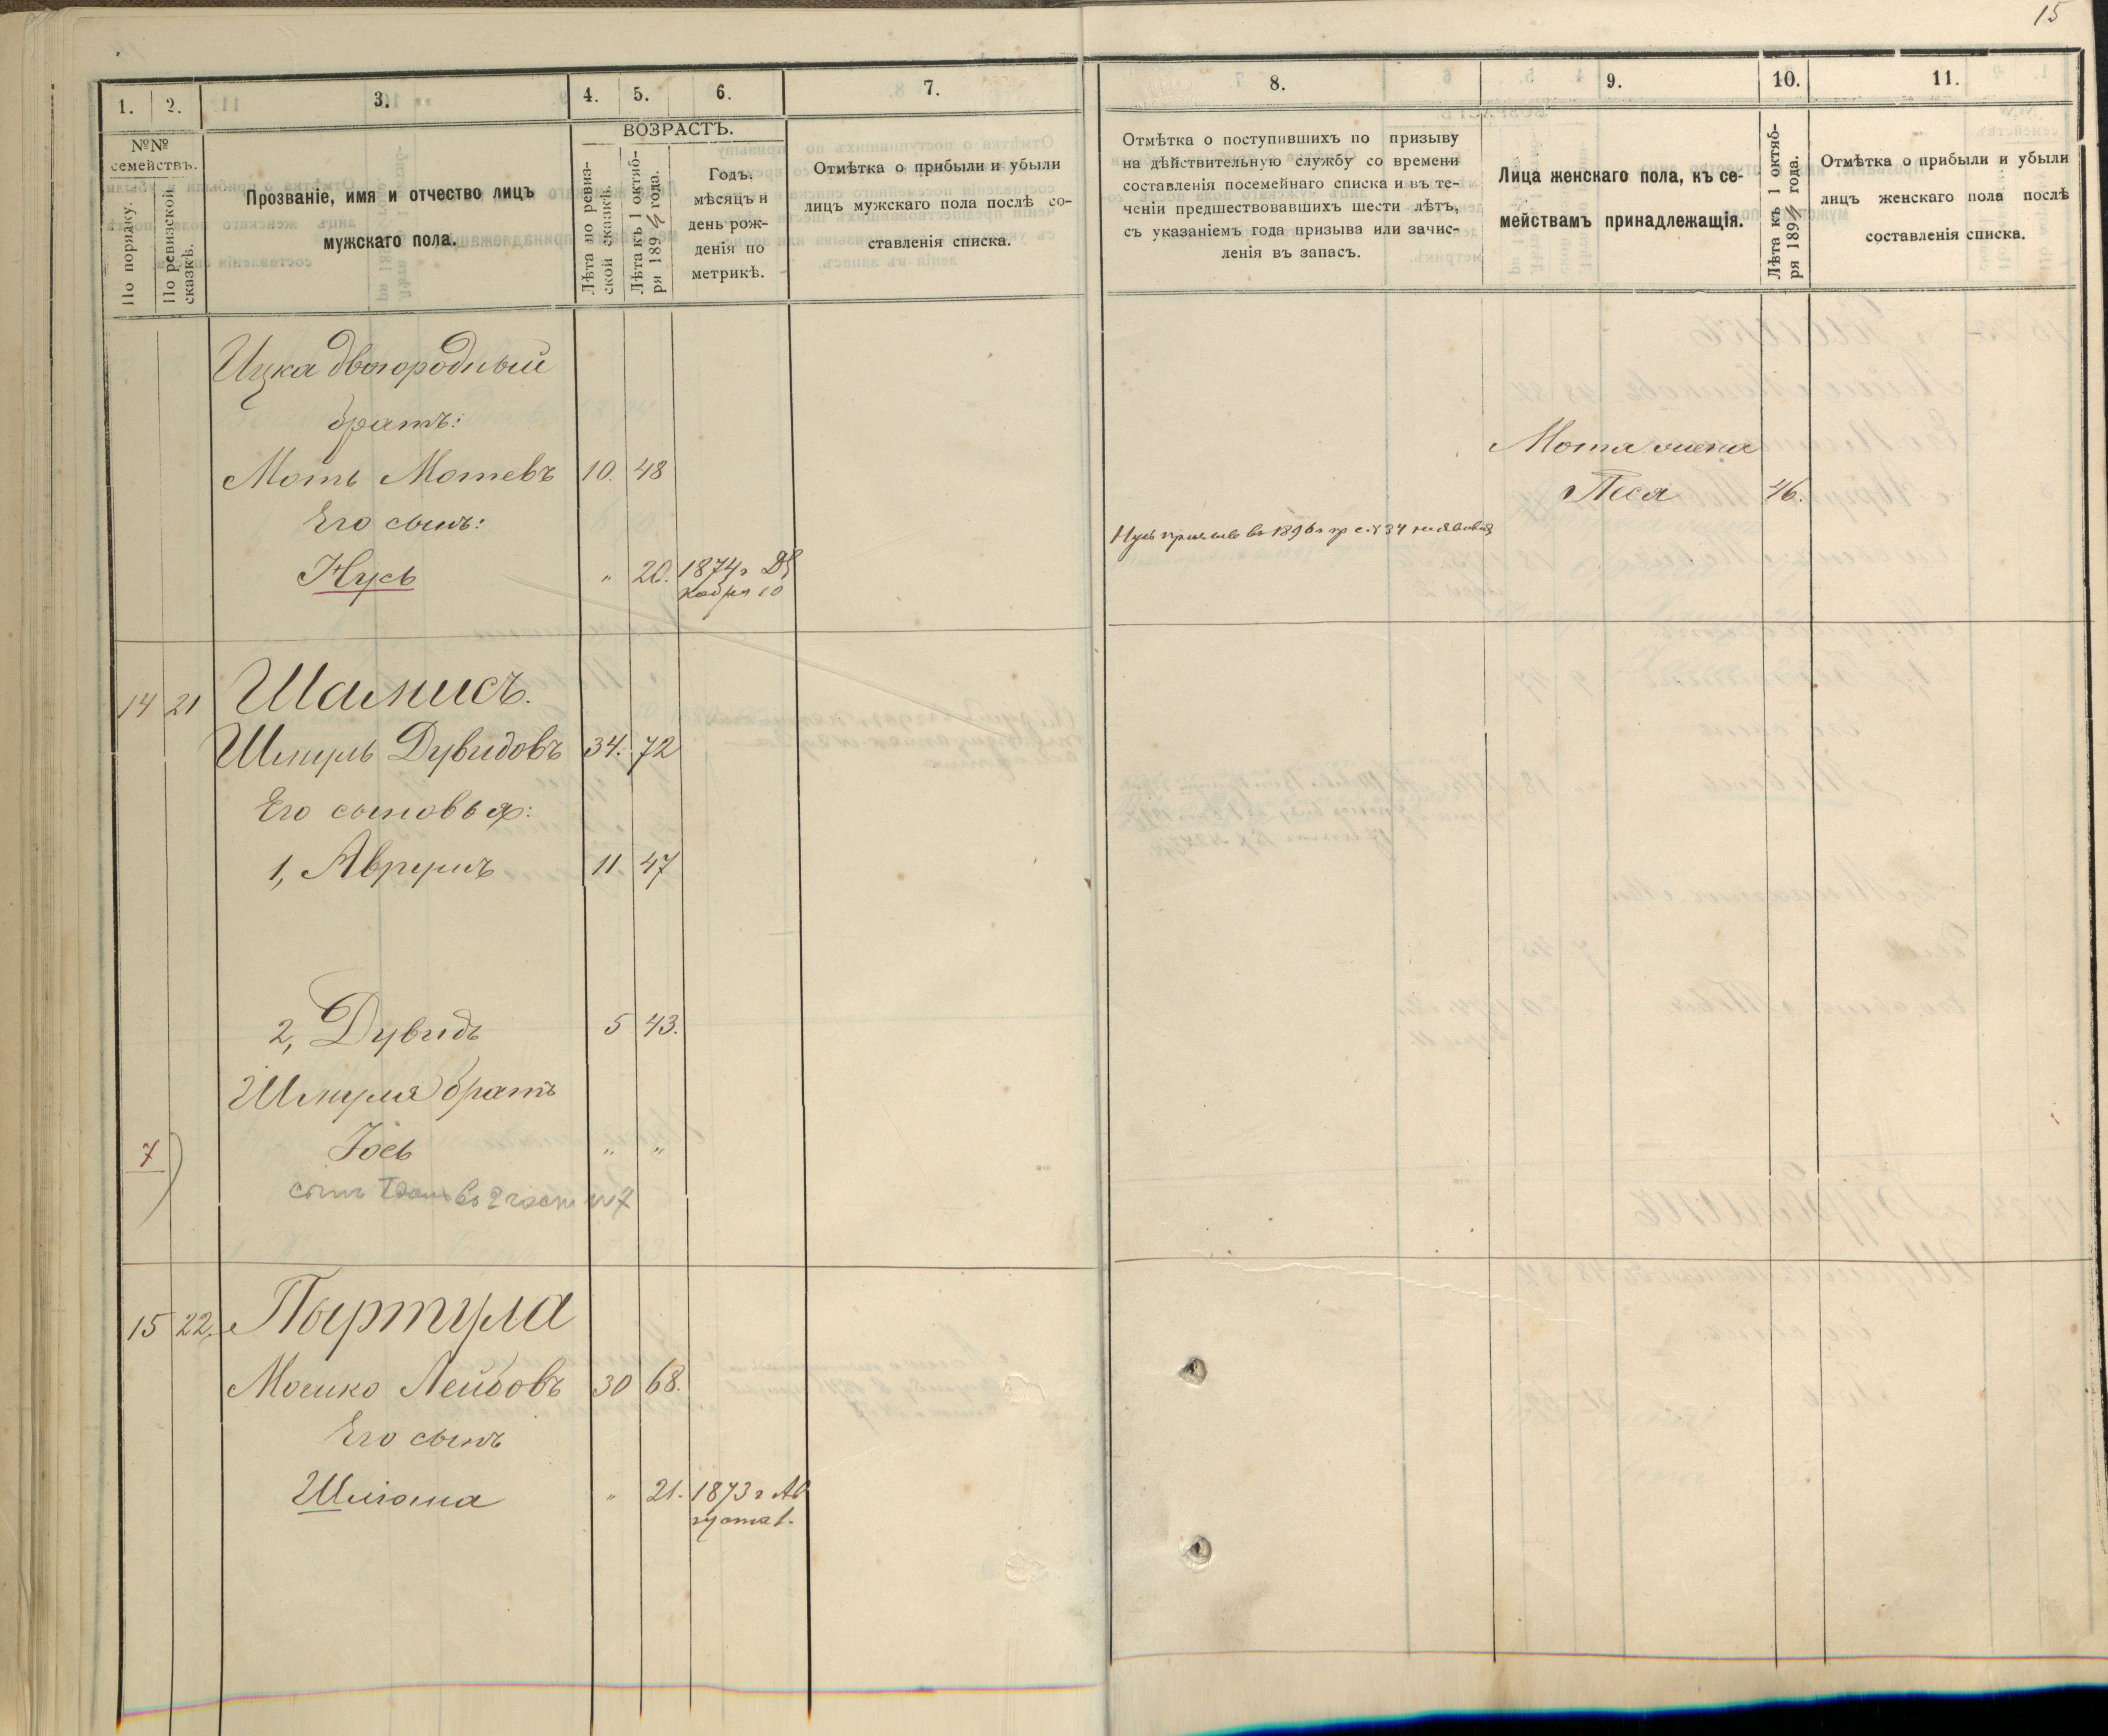 15
1. 2. 3. 4. 5. 6. 7.
№№ семействъ.
По порядку.
По ревизской сказкѣ.
Прозваніе, имя и отчество лицъ
мужскаго пола.
ВОЗРАСТЪ.
Лѣта по ревиз-
ской сказкѣ.
Лѣта къ 1 октяб-
ря 1894 года.
Годъ,
мѣсяцъ и
день рож-
денія по
метрикѣ.
Отмѣтка о прибыли и убыли
лицъ мужскаго пола послѣ со-
ставленія списка.
Ицка двоюродный
братъ:
Моть Мотевъ 10. 48
Его сынъ:
Нусь " 20. 1874 г Де
кабря 10
14 21 Шамисъ.
Шмуль Дувидовъ 34. 72
Его сыновья:
1, Аврумъ 11 47
2, Дувидъ 5 43.
Шмуля братъ
7 Іось " "
сынъ во 2 части №7
15 22. Пыртула
Мошко Лейбовъ 30 68.
Его сынъ
Шлiома " 21. 1873 г Ав
густа 1.
8. 9. 10. 11.
Отмѣтка о поступившихъ по призыву
на дѣйствительную службу со времени
составленія посемейнаго списка и въ те-
ченіи предшествовавшихъ шести лѣтъ,
съ указаніемъ года призыва или зачис-
ленія въ запасъ.
Лица женскаго пола, къ се-
мействамъ принадлежащія.
Лѣта къ 1 октяб-
ря 1894 года.
Отмѣтка о прибыли и убыли
лицъ женскаго пола послѣ
составленія списка.
Мотя жена
Песя 46.
Нусь въ 1896 г 34